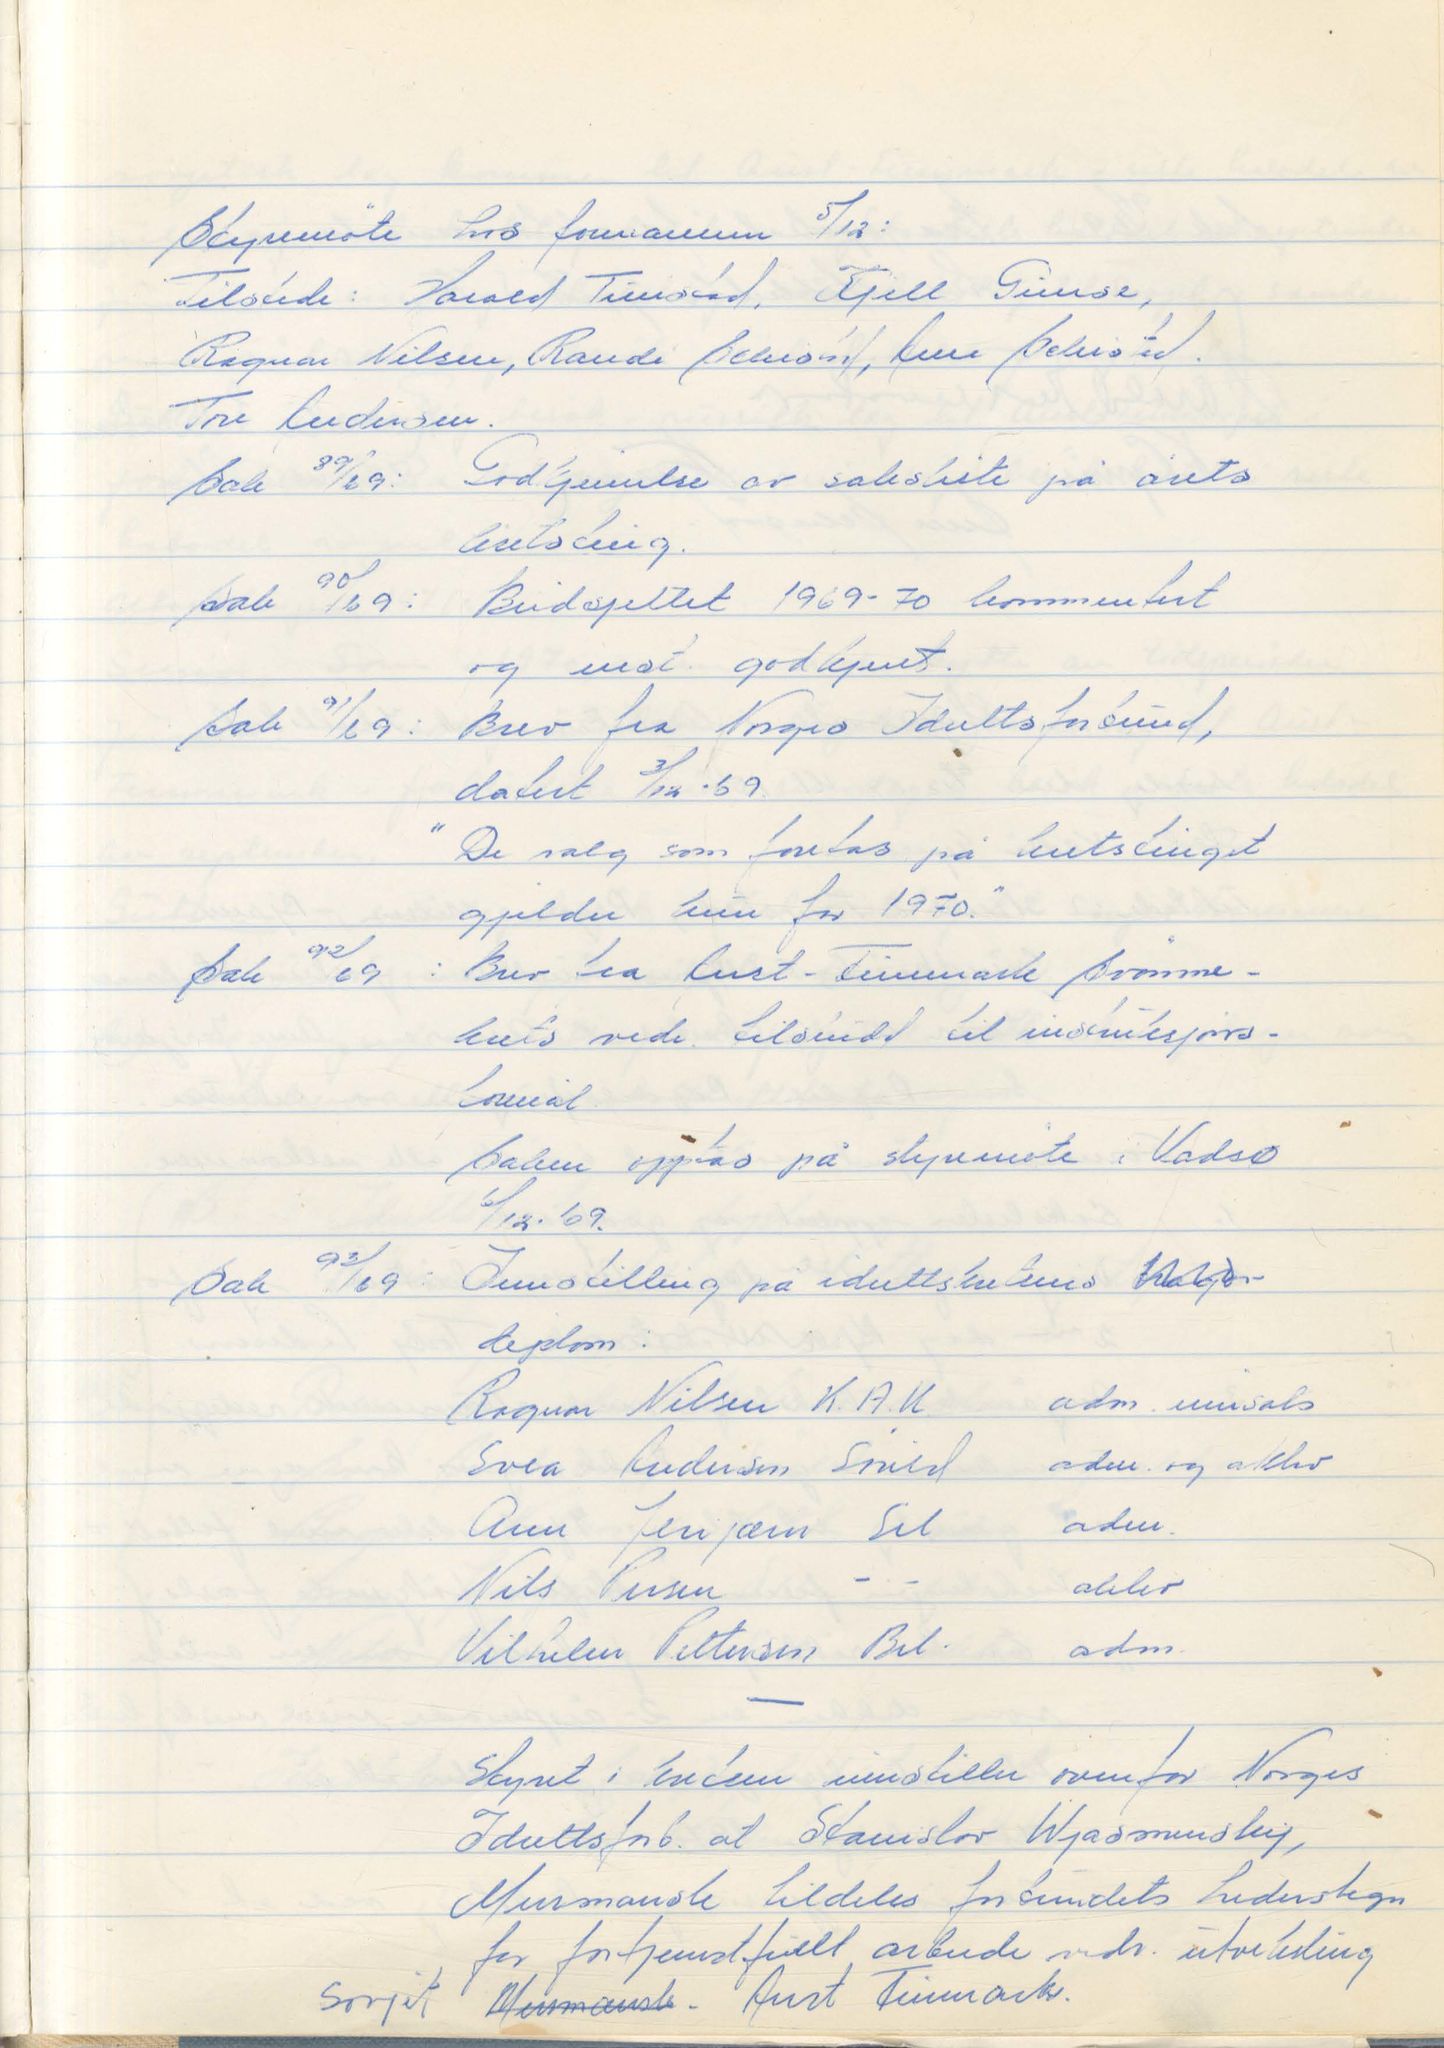 Styremöte hos formannen 5/12:
Tilstede: Harald Timstad, Kjell Gimse,
Ragnar Nilsen, Randi, Arne
Tore Andersen.
Sak 89/69: Godkjennelse av saksliste på årets
kretsting.
Sak 90/69: Budsjettet 1969-70 kommentert
og enst. godkjent.
Sak 91/69: Brev fra Norges Idrettsforbund,
datert 3/12-69.
"De valg som foretas på kretstinget
gjelder kun for 1970."
Sak 92/69: Brev fra Aust-Finnmark Svömme-
krets vedr. tilskudd til instruksjons-
formål.
Saken opptas på styremöte i Vadsø
6/12-69.
Sak 93/69: Innstilling på idrettskretsens
diplom:
Ragnar Nilsen K.A.K adm. innsats
Svea Andersen adm. og aktiv
Ann Sil adm.
Nils Persen - - aktiv
Vilhelm Pettersen Bil. adm.
—
Styret i kretsen innstiller ovenfor Norges
Idrettsforb. at Stanislav Wjasmenskij,
Murmansk tildeles forbundets hederstegn
for fortjenstfullt arbeide vedr. utveksling
Sovjet Murmansk - Aust Finnmark.